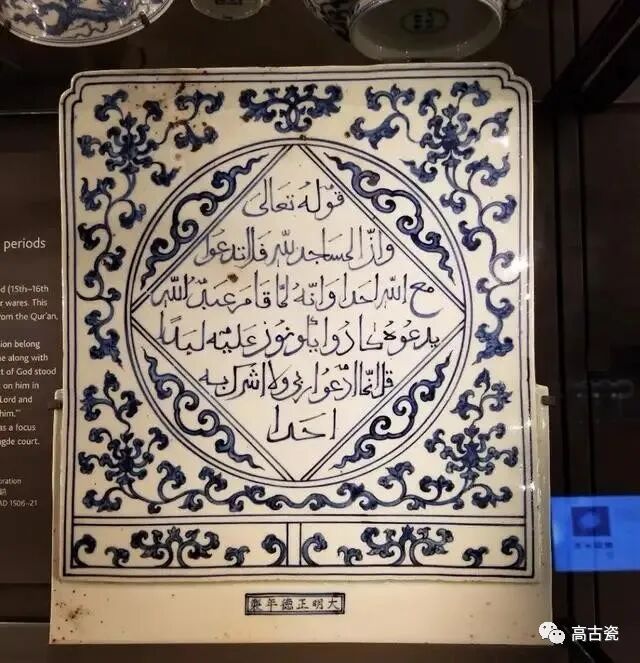 قوله تعالى
وان المساجد لله فلا تدعوا
مع الله احدا وانه لما قام عبد الله
يدعوه كادوا يكونون عليه لبدا
قل انما ادعوا ربي ولا اشرك به
احدا
大明正德年製
periods
(15th–16th
wares. This
the Qur'an,
belong
along with
of God stood
on him in
Lord and
him.'"
as a focus
court.
AD 1506–21
高古瓷